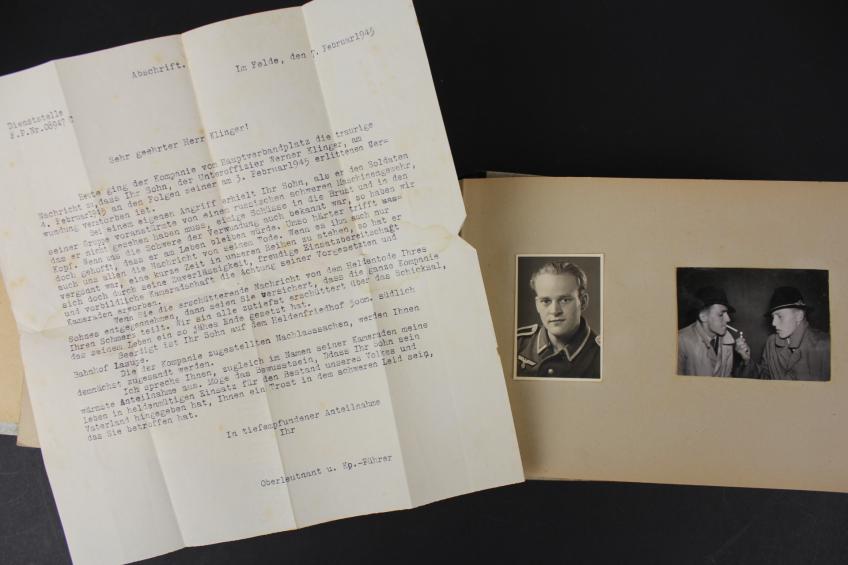 Abschrift.
Im Felde, den 7. Februar 1945
Dienststelle
F.P.Nr.08947
Sehr geehrter Herr Klinger!
Heute ging der Kompanie vom Hauptverbandplatz die traurige
Nachricht zu, dass Ihr Sohn, der Unteroffizier Werner Klinger, am
4. Februar 1945 an den Folgen seiner am 3. Februar 1945 erlittenen Ver-
wundung verstorben ist.
Bei einem eigenen Angriff erhielt Ihr Sohn, als er den Soldaten
seiner Gruppe voranstürmte von einem russischen schweren Maschinengewehr,
das er nicht gesehen haben muss, einige Schüsse in die Brust und in den
Kopf. Wenn uns die Schwere der Verwundung auch bekannt war, so haben wir
doch gehofft, dass er am Leben bleiben würde. Umso härter trifft was
auch uns allen die Nachricht von seinem Tode. Wenn es ihm auch nur
vergönnt war, eine kurze Zeit in unseren Reihen zu stehen, so hat er
sich doch durch seine Zuverlässigkeit, freudige Einsatzbereitschaft
und vorbildliche Kameradschaft die Achtung seiner Vorgesetzten und
Kameraden erworben.
Wenn Sie die erschütternde Nachricht von dem Heldentode Ihres
Sohnes entgegennehmen, dann seien Sie versichert, dass die ganze Kompanie
Ihren Schmerz teilt. Wir sin alle zutiefst erschüttert über das Schicksal,
das seinem Leben ein so jähes Ende gesetzt hat.
Beerdigt ist Ihr Sohn auf dem Heldenfriedhof 300m. südlich
Bahnhof
Die der Kompanie zugestellten Nachlasssachen, werden Ihnen
demnächst zugesandt werden.
Ich spreche Ihnen, zugleich im Namen seiner Kameraden meine
wärmste Anteilnahme aus. Möge das Bewusstsein, dass Ihr Sohn sein
Leben in heldenmütigen Einsatz für den Bestand unseres Volkes und
Vaterland hingegeben hat, Ihnen ein Trost in dem schweren Leid sein,
das Sie betroffen hat.
In tiefempfundener Anteilnahme
Ihr
Oberleutnant u. Kp.-Führer